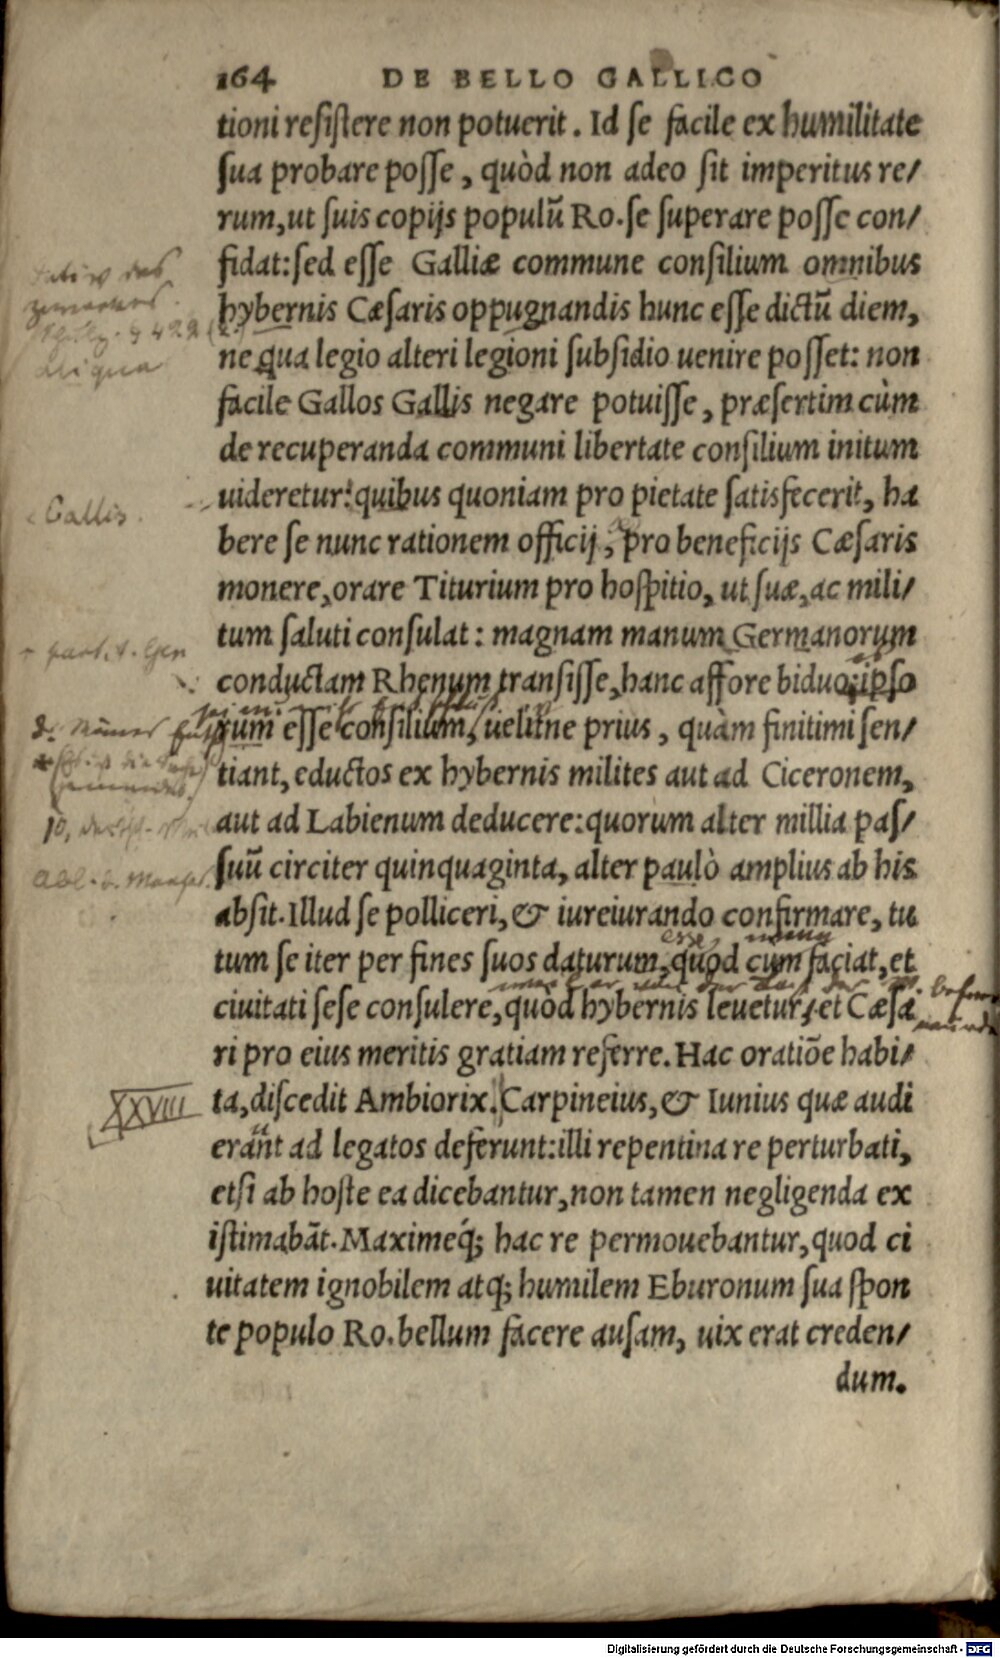 164 DE BELLO GALLICO
tioni resistere non potuerit. Id se facile ex humilitate
sua probare posse, quòd non adeo sit imperitus re/
rum, ut suis copijs populũ Ro. se superare posse con/
fidat: sed esse Galliæ commune consilium omnibus
hybernis Cæsaris oppugnandis hunc esse dictũ diem,
ne qua legio alteri legioni subsidio uenire posset: non
aliqua
facile Gallos Gallis negare potuisse, præsertim cùm
de recuperanda communi libertate consilium initum
uideretur: quibus quoniam pro pietate satisfecerit, ha
Gallis
bere se nunc rationem officij, pro beneficijs Cæsaris
monere, orare Titurium pro hospitio, ut suæ, ac mili/
tum saluti consulat: magnam manum Germanorum
part. t. Gen
conductam Rhenum transisse, hanc affore biduo: ipso
rum esse consilium, uelitne prius, quàm finitimi sen/
tiant, eductos ex hybernis milites aut ad Ciceronem,
aut ad Labienum deducere: quorum alter millia pas/
suũ circiter quinquaginta, alter paulò amplius ab his
absit. Illud se polliceri, & iureiurando confirmare, tu
esse
tum se iter per fines suos daturum, quod cum faciat, et
ciuitati sese consulere, quòd hybernis leuetur, et Cæsa
ri pro eius meritis gratiam referre. Hac oratiõe habi/
XXVIII
ta, discedit Ambiorix. Carpineius, & Iunius quæ audi
erãt ad legatos deferunt: illi repentina re perturbati,
etsi ab hoste ea dicebantur, non tamen negligenda ex
istimabãt. Maximeq́; hac re permouebantur, quod ci
uitatem ignobilem atq; humilem Eburonum sua spon
te populo Ro. bellum facere ausam, uix erat creden/
dum.
Digitalisierung gefördert durch die Deutsche Forschungsgemeinschaft - DFG